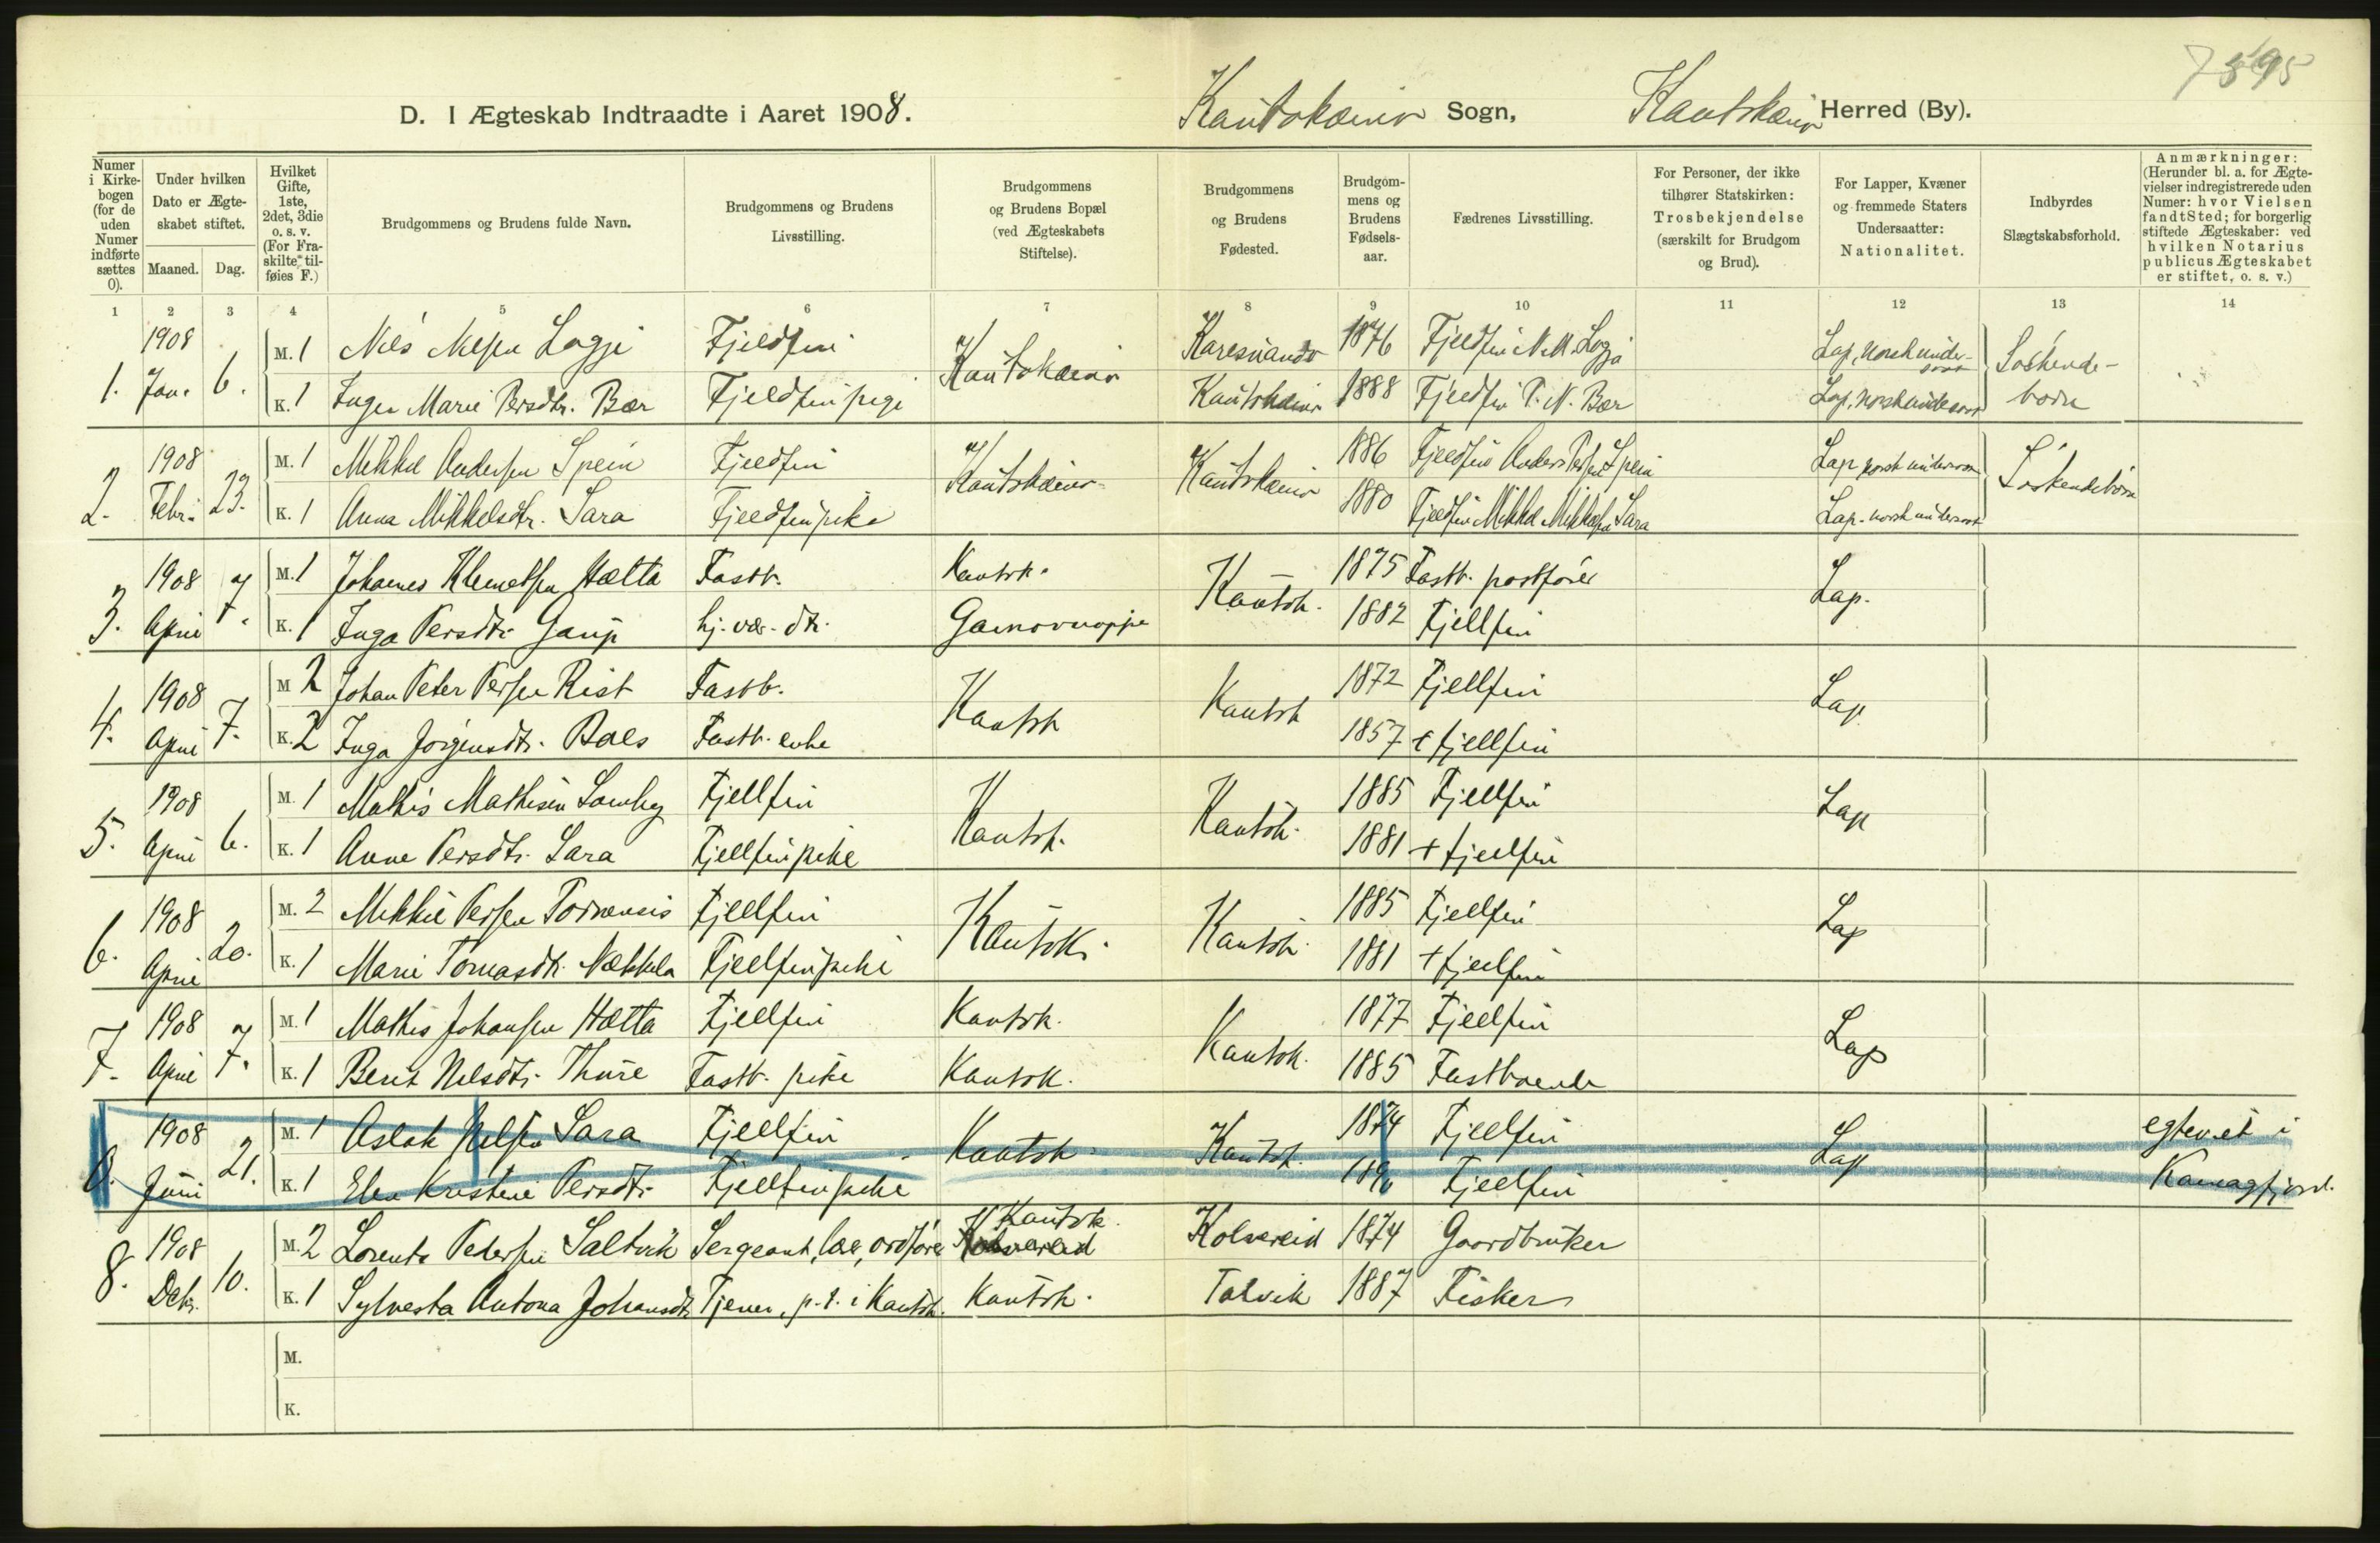 D. I Ægteskab Indtraadte i Aaret 1908. Kautokeino Sogn, Herred (By).
Numer i Kirkebogen (for de uden Numer indførte sættes 0).
Under hvilken Dato er Ægteskabet stiftet.
Maaned. Dag.
Hvilket Gifte, 1ste, 2det, 3die o. s. v. (For Fraskilte tilføies F.)
Brudgommens og Brudens fulde Navn.
Brudgommens og Brudens Livsstilling.
Brudgommens og Brudens Bopæl (ved Ægteskabets Stiftelse).
Brudgommens og Brudens Fødested.
Brudgommens og Brudens Fødselsaar.
Fædrenes Livsstilling.
For Personer, der ikke tilhører Statskirken: Trosbekjendelse (særskilt for Brudgom og Brud).
For Lapper, Kvæner og fremmede Staters Undersaatter: Nationalitet.
Indbyrdes Slægtskabsforhold.
Anmærkninger: (Herunder bl. a. for Ægtevielser indregistrerede uden Numer: hvor Vielsen fandt Sted; for borgerlig stiftede Ægteskaber: ved hvilken Notarius publicus Ægteskabet er stiftet, o. s. v.)
1 2 3 4 5 6 7 8 9 10 11 12 13 14
1. 1908 Jan. 6. M. 1 Nils Nilsen Logje Fjeldfin Kautokeino Karesuando 1876 Fjeldfin N. N. Logje Lap, norsk undersaat Søskende-
K. 1 Inger Marie Persdtr. Bær Fjeldfinpige Kautokeino 1888 Fjeldfin P. N. Bær Lap, norsk undersaat børn
2. 1908 Febr. 23. M. 1 Mikkel Andersen Spein Fjeldfin Kautokeino Kautokeino 1886 Fjeldfin Anders Persen Spein Lap norsk undersaat Søskendebørn
K. 1 Anna Mikkelsdtr. Sara Fjeldfinpike 1880 Fjeldfin Mikkel Mikkelsen Sara Lap. norsk undersaat
3. 1908 April 7. M. 1 Johannes Klemetsen Hætta Fastb. Kautok. Kautok. 1875 Fastb. postfører Lap.
K. 1 Inga Persdtr. Gaup hj. vær. dtr. 1882 Fjellfin
4. 1908 April 7. M 2 Johan Peter Persen Rist Fastb. Kautok Kautok 1872 Fjellfin Lap
K. 2 Inga Jørgensdtr. Baes Fastb. enke 1857 + fjellfin
5. 1908 April 6. M. 1 Mathis Mathisen Fjellfin Kautok. Kautok. 1885 Fjellfin Lap
K. 1 Anne Persdtr. Sara Fjellfinpike 1881 + fjellfin
6. 1908 April 20. M. 2 Mikkel Persen Tornensis Fjellfin Kautok. Kautok. 1885 Fjellfin Lap
K. 1 Marie Tomasdtr. Nækkela Fjellfinpike 1881 + fjellfin
7. 1908 April 7. M. 1 Mathis Johansen Hætta Fjellfin Kautok. Kautok. 1877 Fjellfin Lap
K. 1 Berit Nilsdtr. Thure Fastb. pike Kautok. 1885 Fastboende
0. 1908 Juni 21. M. 1 Aslak Nilsen Sara Fjellfin Kautok. Kautok. 1874 Fjellfin Lap egteviet i
K. 1 Elen Kristine Persdtr. Fjellfinpike Fjellfin Kamagfjord.
8. 1908 Debr. 10. M. 2 Lorents Pedersen Saltvik Sergeant, læ, ordfører Kautok. Kolvereid 1874 Gaardbruker
K. 1 Sylvesta Antona Johansdtr. Tjener, p. t. i Kautok. Kautok. Talvik 1887 Fisker
M.
K.